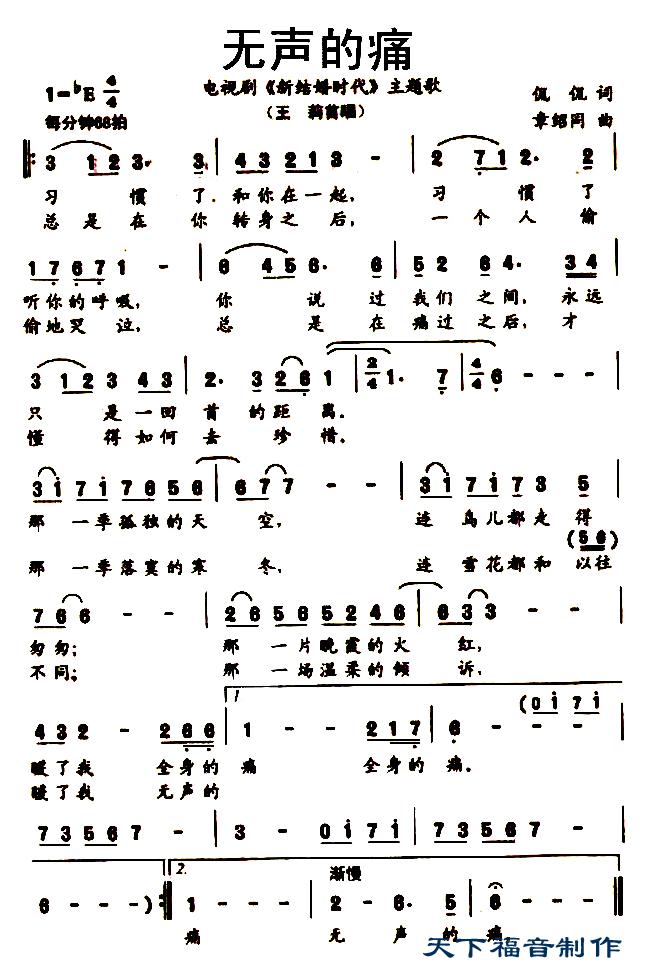 无声的痛
电视剧《新结婚时代》主题歌
1=♭E 4/4
侃 侃 词
每分钟68拍
（王 莉 演唱）
章绍同 曲
3 1 2 3· 3 4 3 2 1 3 - 2 7 1 2· 2
习 惯 了 和你在一起， 习 惯 了
总 是 在 你 转身之 后， 一 个 人 偷
1 7 6 7 1 - 6 4 5 6· 6 5 2 4 5· 3 4
听你的呼吸， 你 说 过 我们之间，永远
偷地哭泣， 总 是 在 痛过之后，才
3 1 2 3 4 3 2· 3 2 6 2/4 1· 7 4/4 6 - - -
只 是 一 回 首 的 距 离。
懂 得 如 何 去 珍 惜。
3 1 7 1 7 6 5 6 6 7 7 - - 3 1 7 1 7 3 5
那 一季孤独的天 空， 连 鸟儿都走 得
(5 6)
那 一季落寞的寒 冬， 连 雪花都和 以往
7 6 6 - - 2 6 5 6 5 2 4 6 6 3 3 - -
匆匆； 那 一片晚霞的火 红，
不同； 那 一场温柔的倾 诉，
1.
(0 1 7 1
4 3 2 - 2 6 6 1 - - 2 1 7 6 - -
暖了我 全身的 痛 全身的 痛。
暖了我 无声的
7 3 5 6 7 - - 3 - 0 1 7 1 7 3 5 6 7 - -
2. 渐慢
6 - - -) 1 - - - 2 - 6· 5 6 - - -
痛 无 声 的 痛。
天下福音制作